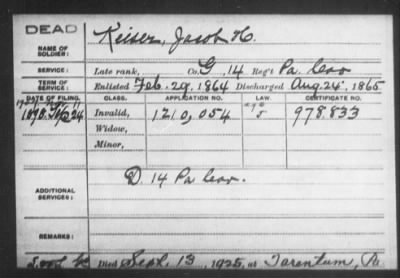 DEAD
NAME OF SOLDIER:
Keiser, Jacob H.
SERVICE:
Late rank, Co. G, 14 Reg't Pa. Cav
TERM OF SERVICE:
Enlisted Feb. 29, 1864 Discharged Aug. 24, 1865
DATE OF FILING. CLASS. APPLICATION NO. LAW. CERTIFICATE NO.
1898 Sep 24 Invalid, 1210,054 978.833
Widow,
Minor,
ADDITIONAL SERVICES:
D. 14 Pa Cav.
REMARKS:
Died Sept. 13, 1925, at Tarentum, Pa.